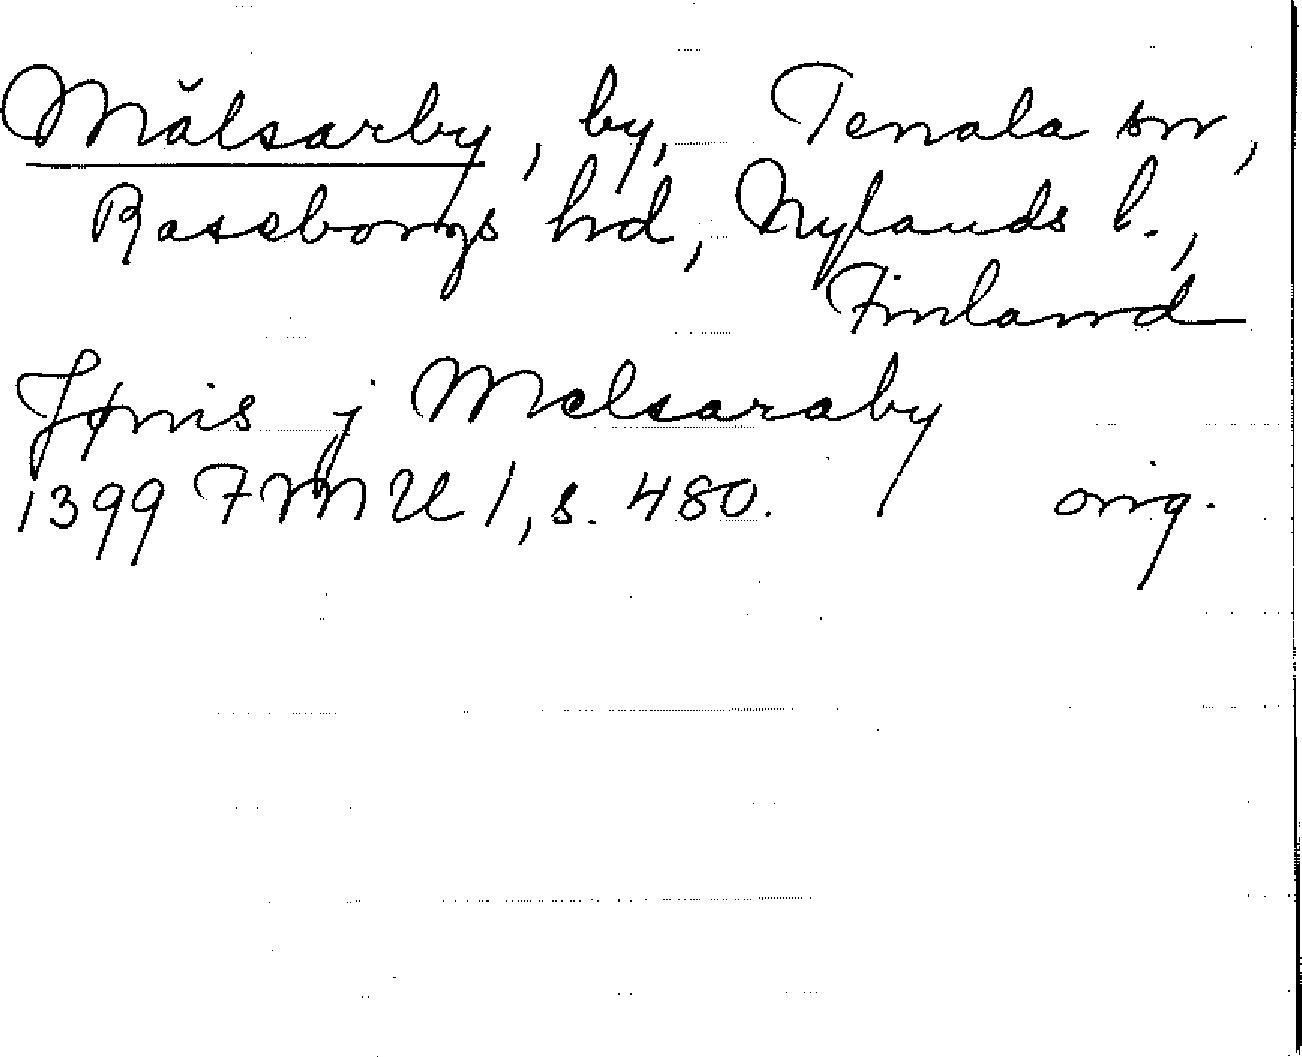 Målsarby, by, Tenala sn,
Raseborgs hd, Nylands l.,
Finland
Jønis j Melsaraby
1399 FMU 1, s. 480. orig.